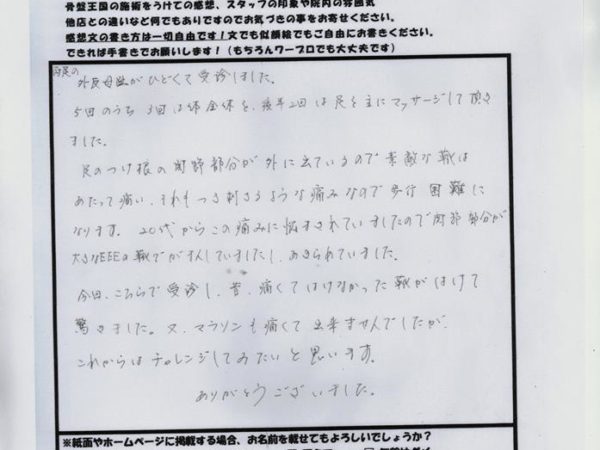 骨盤王国の施術をうけての感想、スタッフの印象や院内の雰囲気
他店との違いなど何でもありですのでお気づきの事をお寄せください。
感想文の書き方は一切自由です！文でも似顔絵でもご自由にお書きください。
できれば手書きでお願いします！（もちろんワープロでも大丈夫です）
両足の
外反母趾がひどくて受診しました。
5回のうち3回は体全体を、後半2回は足を主にマッサージして頂き
ました。
足のつけ根の関節部分が外に出ているので素敵な靴は
あたって痛い、それもつき刺さるような痛みなので歩行困難に
なります。20代からこの痛みに悩まされていましたので関節部分が
大きなEEEの靴でがまんしていましたし、あきらめていました。
今回、こちらで受診し、昔、痛くてはけなかった靴がはけて
驚きました。又、マラソンも痛くて出来ませんでしたが、
これからはチャレンジしてみたいと思います。
ありがとうございました。
※紙面やホームページに掲載する場合、お名前を載せてもよろしいでしょうか？